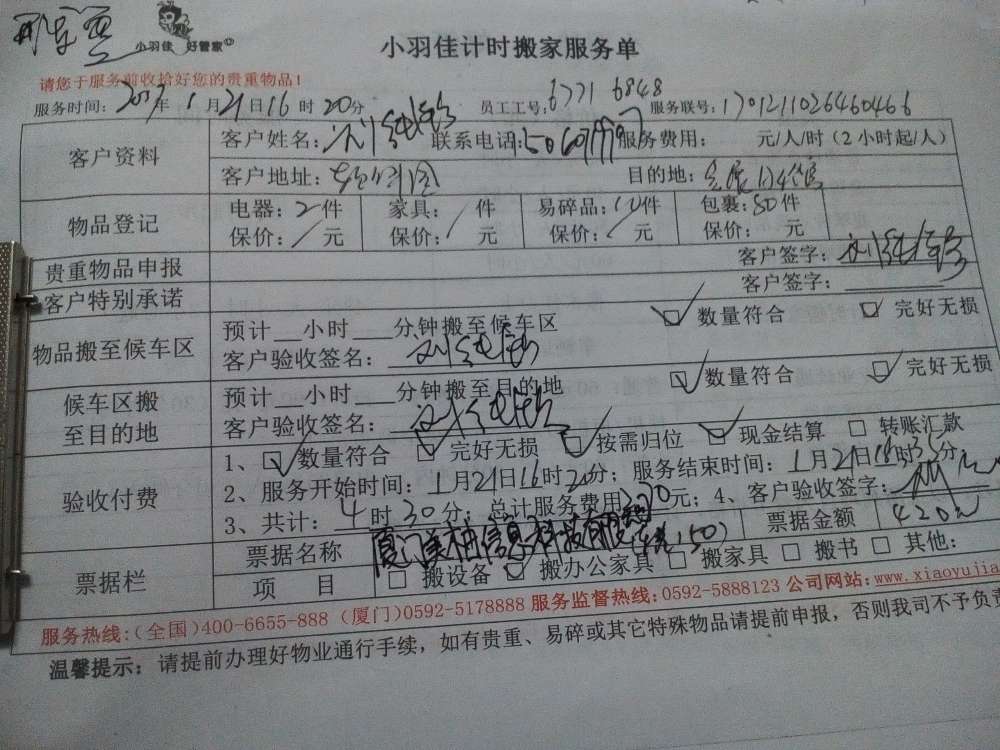 小羽佳 好管家
小羽佳计时搬家服务单
请您于服务前收拾好您的贵重物品!
服务时间: 2017年1月21日16时20分 员工工号: 6771 6848 服务联号: 1701211026460466
客户资料
客户姓名: 联系电话: 服务费用: 元/人/时(2小时起/人)
客户地址: 目的地:
物品登记
电器: 2件 家具: / 件 易碎品: 件 包裹: 80件
保价: / 元 保价: / 元 保价: / 元 保价: 元
贵重物品申报 客户签字:
客户特别承诺 客户签字:
物品搬至候车区
预计__小时___分钟搬至候车区 ☑数量符合 ☑完好无损
客户验收签名:
候车区搬
至目的地
预计__小时___分钟搬至目的地 ☑数量符合 ☑完好无损
客户验收签名:
验收付费
1、☑数量符合 ☑完好无损 ☑按需归位 ☑现金结算 □转账汇款
2、服务开始时间: 1月21日16时20分; 服务结束时间: 1月21日 时35分
3、共计: 4时30分; 总计服务费用 元; 4、客户验收签字:
票据栏
票据名称 厦门美柚信息科技有限 票据金额 420
项 目 □搬设备 ☑搬办公家具 □搬家具 □搬书 □其他:
服务热线:(全国)400-6655-888 (厦门)0592-5178888 服务监督热线:0592-5888123 公司网站:www.xiaoyujia
温馨提示: 请提前办理好物业通行手续，如有贵重、易碎或其它特殊物品请提前申报，否则我司不予负责